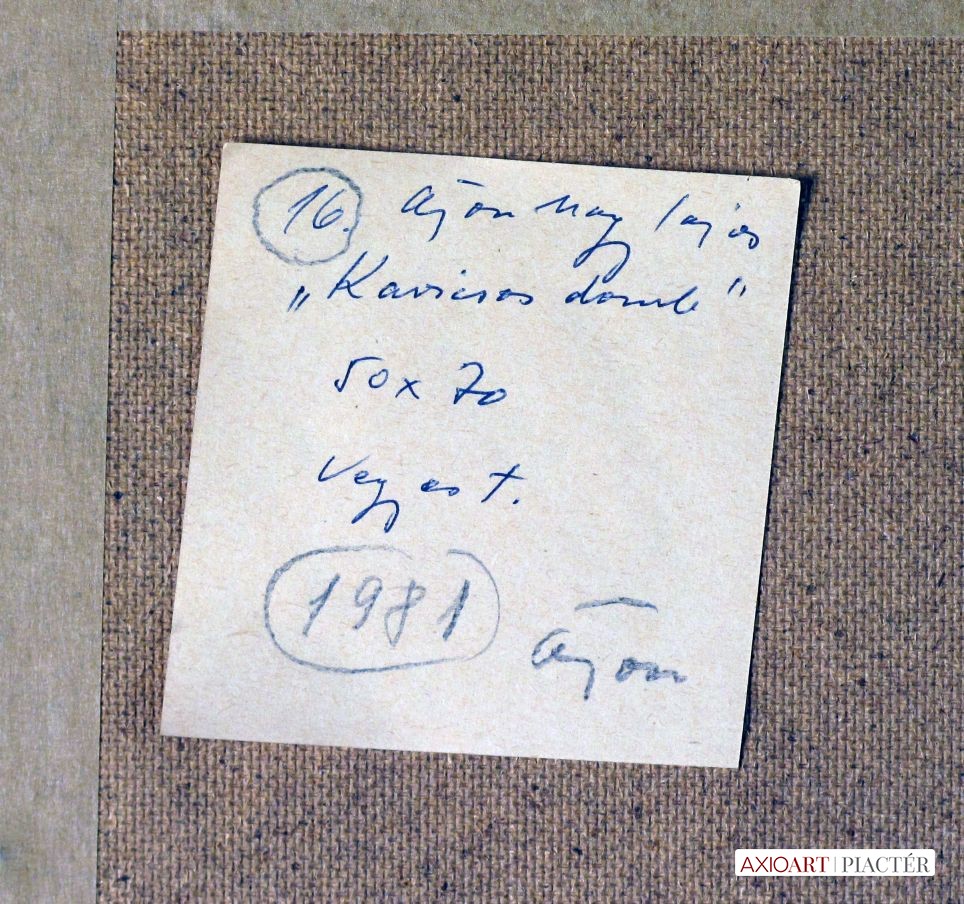 16. Ajon Nagy Lajos
„Kavicsos domb"
50x70
Vegyes t.
1981
Ajon
AXIOART | PIACTÉR